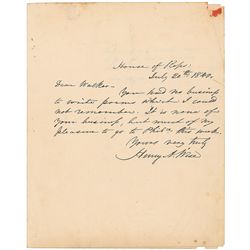 House of Reps.
July 20th 1840.
Dear Walker-
You had no business
to write poems which I could
not remember. It is none of
your business, but most of my
pleasure to go to Phila. this week.
Yours very truly
Henry A. Wise